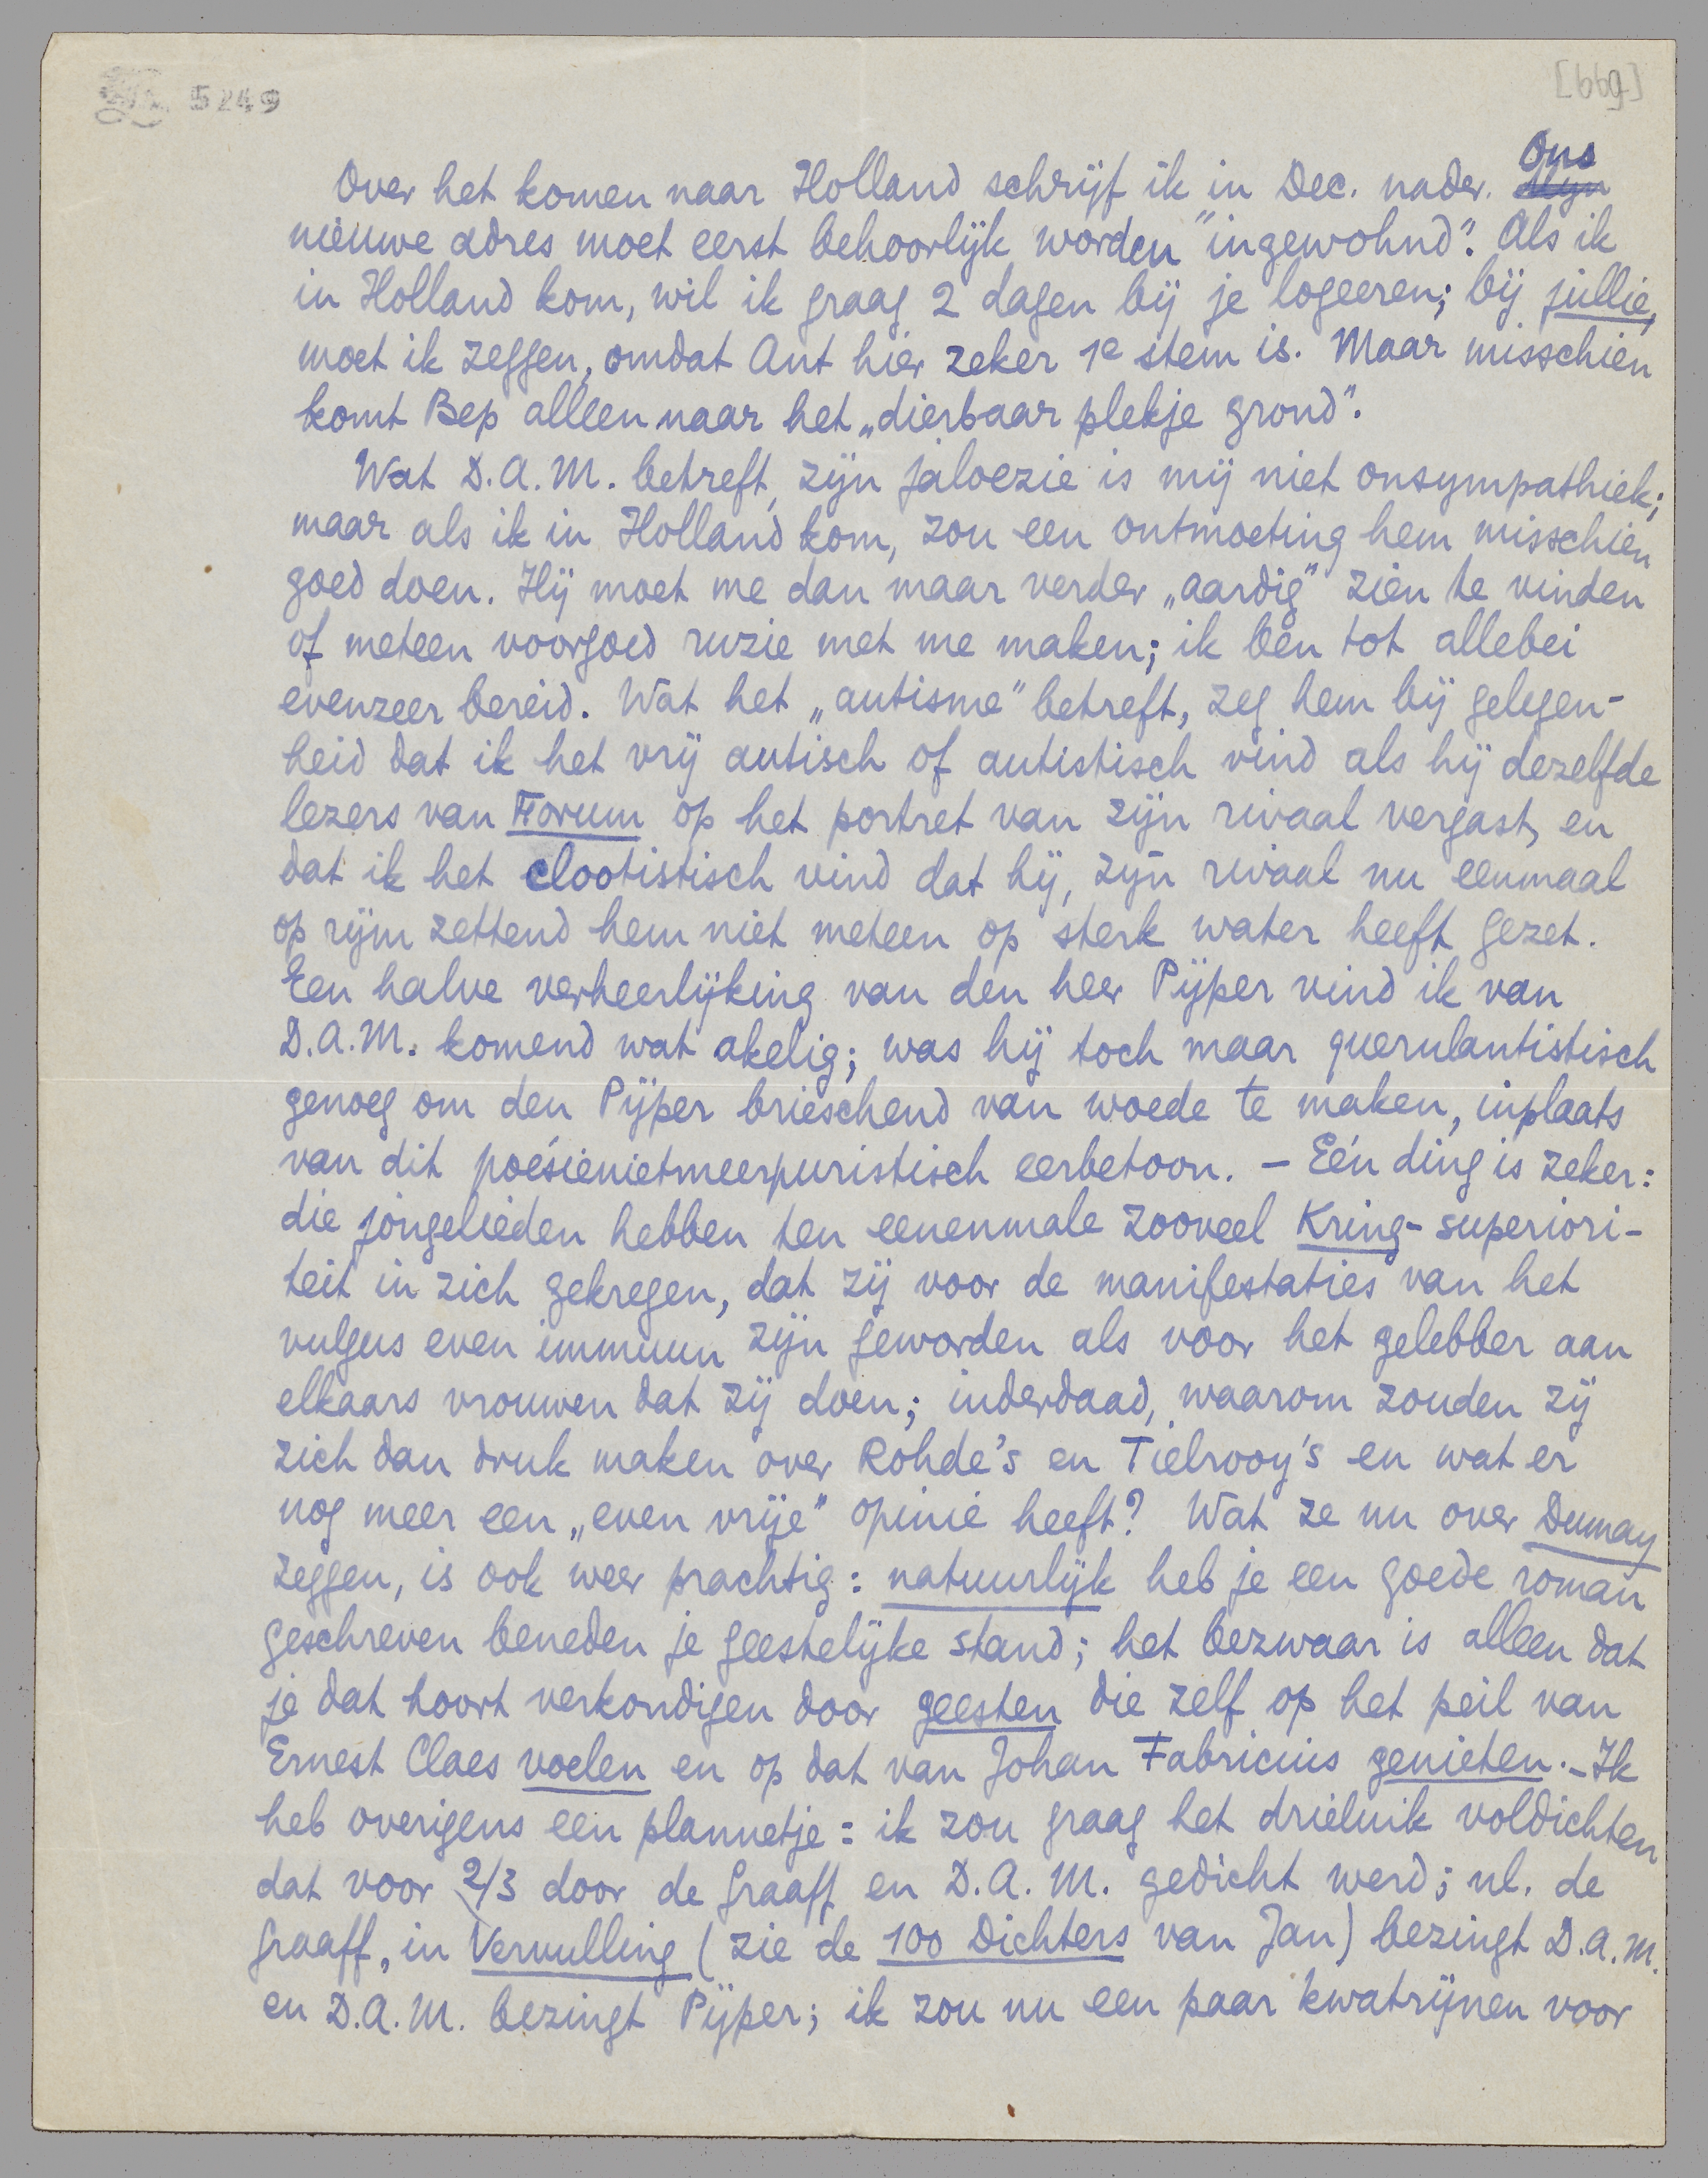 5249
[669]
Over het komen naar Holland schrijf ik in Dec. nader. Ons
nieuwe adres moet eerst behoorlijk worden "ingewohnd". Als ik
in Holland kom, wil ik graag 2 dagen bij je logeeren; bij jullie,
moet ik zeggen, omdat Ant hier zeker 1e stem is. Maar misschien
komt Bep alleen naar het „dierbaar plekje grond".
Wat D.A.M. betreft, zijn jaloezie is mij niet onsympathiek;
maar als ik in Holland kom, zou een ontmoeting hem misschien
goed doen. Hij moet me dan maar verder „aardig" zien te vinden
of meteen voorgoed ruzie met me maken; ik ben tot allebei
evenzeer bereid. Wat het „autisme" betreft, zeg hem bij gelegen-
heid dat ik het vrij autisch of autistisch vind als hij dezelfde
lezers van Forum op het portret van zijn rivaal vergast, en
dat ik het clootistisch vind dat hij, zijn rivaal nu eenmaal
op rijm zettend hem niet meteen op sterk water heeft gezet.
Een halve verheerlijking van den heer Pijper vind ik van
D.A.M. komend wat akelig; was hij toch maar querulantistisch
genoeg om den Pijper brieschend van woede te maken, inplaats
van dit poésienietmeerpuristisch eerbetoon. – Eén ding is zeker:
die jongelieden hebben ten eenenmale zooveel Kring-superiori-
teit in zich gekregen, dat zij voor de manifestaties van het
vulgus even immuun zijn geworden als voor het gelebber aan
elkaars vrouwen dat zij doen; inderdaad, waarom zouden zij
zich dan druk maken over Rohde's en Tielrooy's en wat er
nog meer een „even vrije" opinie heeft? Wat ze nu over Dumay
zeggen, is ook weer prachtig: natuurlijk heb je een goede roman
geschreven beneden je geestelijke stand; het bezwaar is alleen dat
je dat hoort verkondigen door geesten die zelf op het peil van
Ernest Claes voelen en op dat van Johan Fabricius genieten. – Ik
heb overigens een plannetje: ik zou graag het drieluik voldichten
dat voor 2/3 door de Graaff en D.A.M. gedicht werd; nl. de
Graaff, in Vervulling (zie de 100 Dichters van Jan) bezingt D.A.M.
en D.A.M. bezingt Pijper; ik zou nu een paar kwatrijnen voor